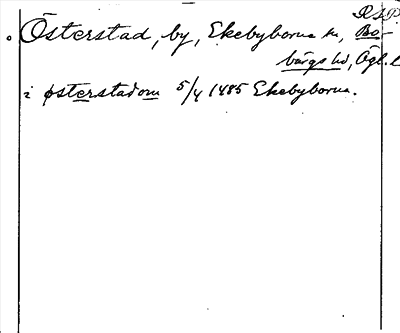 RSP.
Österstad, by, Ekebyborna sn, Bo-
bärgs hd, Ögl.
i østerstadom 5/4 1485 Ekebyborna.